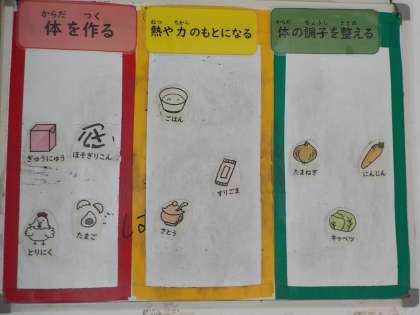 からだ つく
体を作る
ねつ ちから
熱や力のもとになる
からだ ちょうし ととの
体の調子を整える
ごはん
ぎゅうにゅう
ほそぎりこん
たまねぎ
にんじん
すりごま
とりにく
たまご
さとう
キャベツ